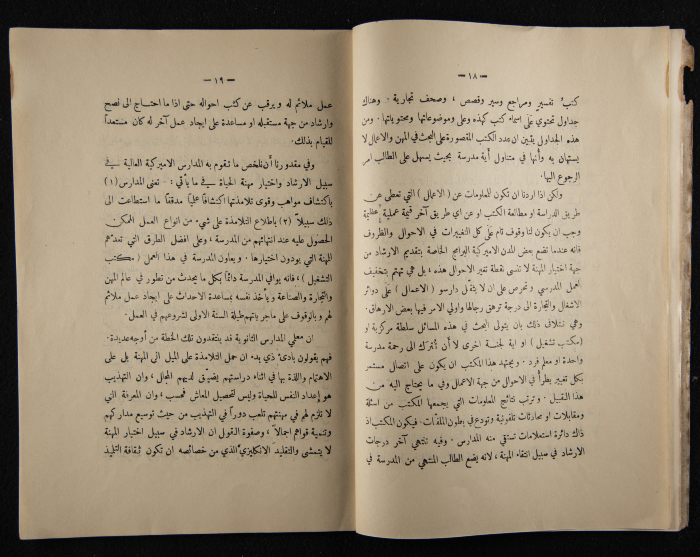 — ١٨ —
كتبُ تفسيرٍ ومراجع وسير وقصص ، وصحف تجارية . وهناك
جداول تحتوي على اسماء كتب كهذه وعلى موضوعاتها ومحتوياتها . ومن
هذه الجداول يتبين ان عدد الكتب المقصورة على البحث في المهن والاعمال لا
يستهان به وأنها في متناول أية مدرسة بحيث يسهل على الطالب امر
الرجوع اليها .
ولكن اذا اردنا ان تكون المعلومات عن ( الاعمال ) التي تعطى عن
طريق الدراسة او مطالعة الكتب او عن اي طريق آخر قيمة عملية عظيمة
وجب ان يكون لنا وقوف تام على كل التغييرات في الاحوال والظروف
فانه عندما تضع بعض المدن الاميركية البرامج الخاصة بتقديم الارشاد من
جهة اختيار المهنة لا تنسى نقطة تغير الاحوال هذه ، بل هي تهتم بتخفيف
العمل المدرسي وتحرص على ان لا يثقل دارسو ( الاعمال ) على دوائر
الاشغال والتجارة الى درجة ترهق رجالها واولي الامر فيها بعض الارهاق .
وهي تتلافى ذلك بان يتولى البحث في هذه المسائل سلطة مركزية او
( مكتب تشغيل ) او اية لجنة اخرى لا أن تُترك الى رحمة مدرسة
واحدة او معلم فرد . ويجتهد هذا المكتب ان يكون على اتصال مستمر
بكل تغيير يطرأ في الاحوال من جهة الاعمال وفي ما يحتاج اليه من
هذا القبيل . وترتب نتائج المعلومات التي يجمعها المكتب من اسئلة
ومقابلات او محادثات تلفونية وتودع في بطون الملفات . فيكون المكتب اذ
ذاك دائرة استعلامات تستقي منه المدارس . وفيه تنتهي آخر درجات
الارشاد في سبيل انتقاء المهنة ، لانه يضع الطالب المنتهي من المدرسة في
— ١٩ —
عمل ملائم له ويرقب عن كثب احواله حتى اذا ما احتاج الى نصح
وارشاد من جهة مستقبله او مساعدة على ايجاد عمل آخر له كان مستعداً
للقيام بذلك .
وفي مقدورنا أن نلخص ما تقوم به المدارس الاميركية العالية في
سبيل الارشاد واختيار مهنة الحياة في ما يأتي : — تعنى المدارس ( ١ )
باكتشاف مواهب وقوى تلامذتها اكتشافاً علمياً مدققاً ما استطاعت الى
ذلك سبيلاً ( ٢ ) باطلاع التلامذة على شيء من انواع العمل الممكن
الحصول عليه عند انتهائهم من المدرسة ، وعلى افضل الطرق التي تعدهم
للمهنة التي يودون اختيارها . ويعاون المدرسة في هذا العمل ( مكتب
التشغيل ) ، فانه يوافي المدرسة دائماً بكل ما يحدث من تطور في عالم المهن
والتجارة والصناعة ويأخذ نفسه بمساعدة الاحداث على ايجاد عمل ملائم
لهم وبالوقوف على ماجرياتهم طيلة السنة الاولى لشروعهم في العمل .
ان معلمي المدارس الثانوية قد ينتقدون تلك الخطة من أوجه عديدة .
فهم يقولون بادىء ذي بدء ان حمل التلامذة على الميل الى المهنة بل على
الاهتمام واللذة بها في اثناء دراستهم يضيّق لديهم المجال ، وان التهذيب
هو إعداد النفس للحياة وليس لتحصيل المعاش فحسب ، وان المعرفة التي
لا تلزم لهم في مهنتهم تلعب دوراً في التهذيب من حيث توسيع مداركهم
وتنمية قواهم اجمالاً ، وصفوة القول ان الارشاد في سبيل اختيار المهنة
لا يتمشى والتقليد الانكليزي الذي من خصائصه ان تكون ثقافة التلميذ